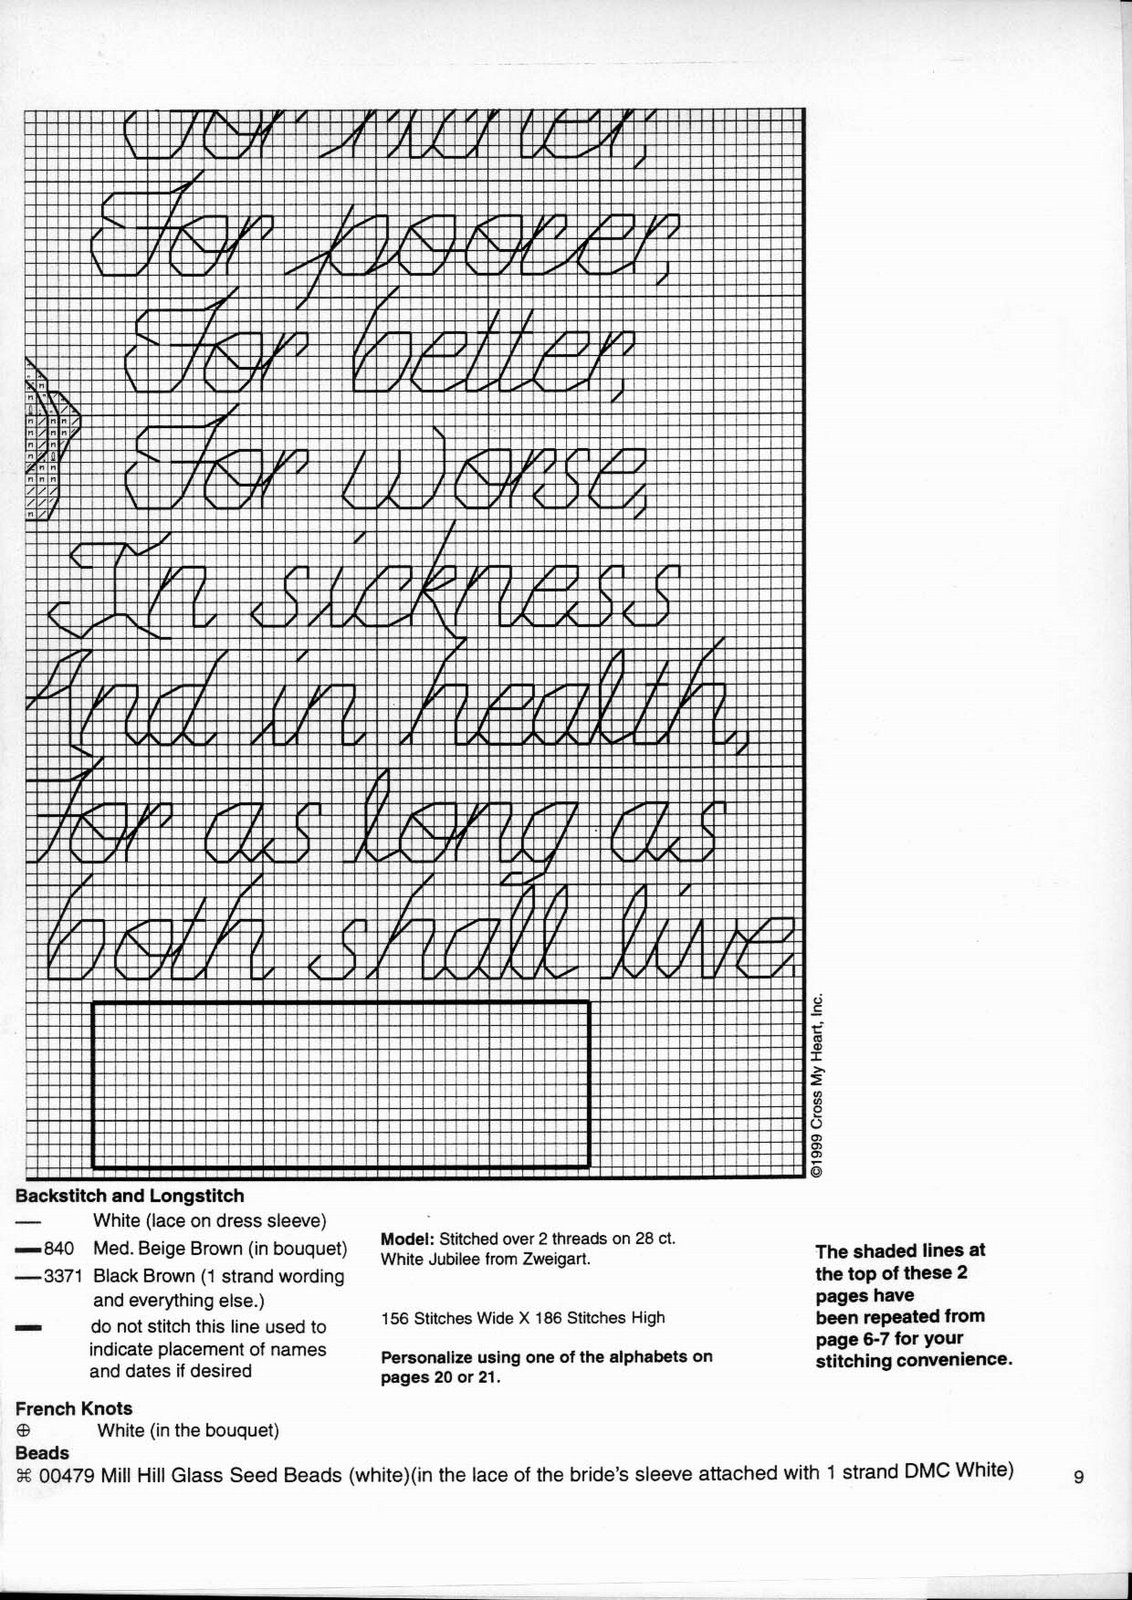 For poorer,
For better,
For worse,
In sickness
And in health,
For as long as
both shall live
©1999 Cross My Heart, Inc.
Backstitch and Longstitch
White (lace on dress sleeve)
840 Med. Beige Brown (in bouquet)
3371 Black Brown (1 strand wording
and everything else.)
do not stitch this line used to
indicate placement of names
and dates if desired
French Knots
⊕ White (in the bouquet)
Beads
⌘ 00479 Mill Hill Glass Seed Beads (white)(in the lace of the bride's sleeve attached with 1 strand DMC White)
Model: Stitched over 2 threads on 28 ct.
White Jubilee from Zweigart.
156 Stitches Wide X 186 Stitches High
Personalize using one of the alphabets on
pages 20 or 21.
The shaded lines at
the top of these 2
pages have
been repeated from
page 6-7 for your
stitching convenience.
9